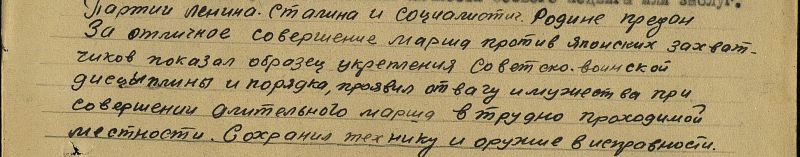 боевого подвига или заслуг.
Партии Ленина-Сталина и Социалистич. Родине предан
За отличное совершение марша против японских захват-
чиков показал образец укрепления Советско-воинской
дисцыплины и порядка, проявил отвагу и мужества при
совершении длительного марша в трудно проходимой
местности. Сохранил технику и оружие в исправности.